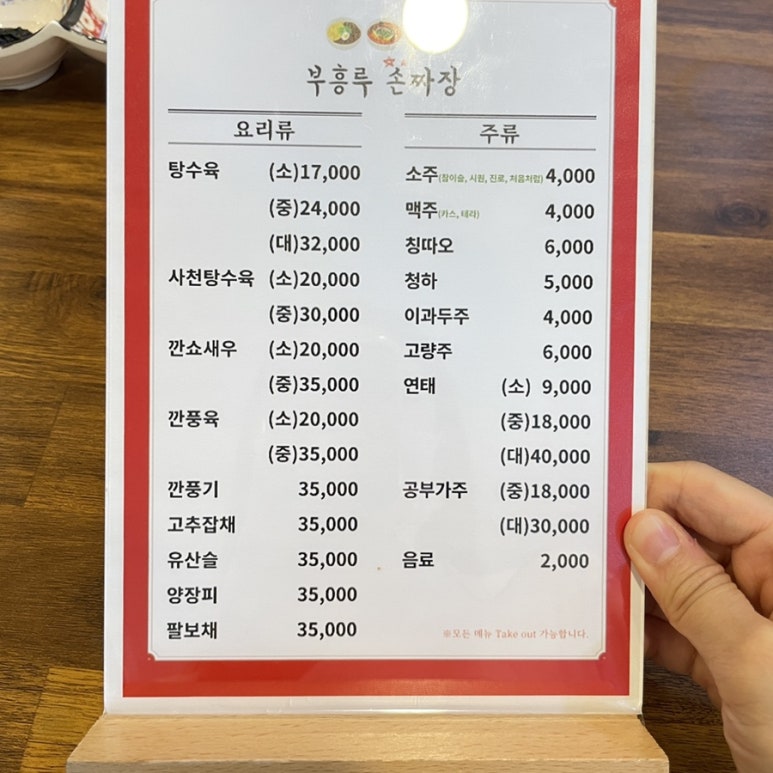 부흥루 손짜장
요리류
탕수육 (소)17,000
(중)24,000
(대)32,000
사천탕수육 (소)20,000
(중)30,000
깐쇼새우 (소)20,000
(중)35,000
깐풍육 (소)20,000
(중)35,000
깐풍기 35,000
고추잡채 35,000
유산슬 35,000
양장피 35,000
팔보채 35,000
주류
소주(참이슬, 시원, 진로, 처음처럼) 4,000
맥주(카스, 테라) 4,000
칭따오 6,000
청하 5,000
이과두주 4,000
고량주 6,000
연태 (소) 9,000
(중)18,000
(대)40,000
공부가주 (중)18,000
(대)30,000
음료 2,000
※모든 메뉴 Take out 가능합니다.